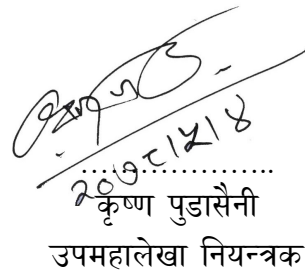 २०७८।५।४
....................
कृष्ण पुडासैनी
उपमहालेखा नियन्त्रक